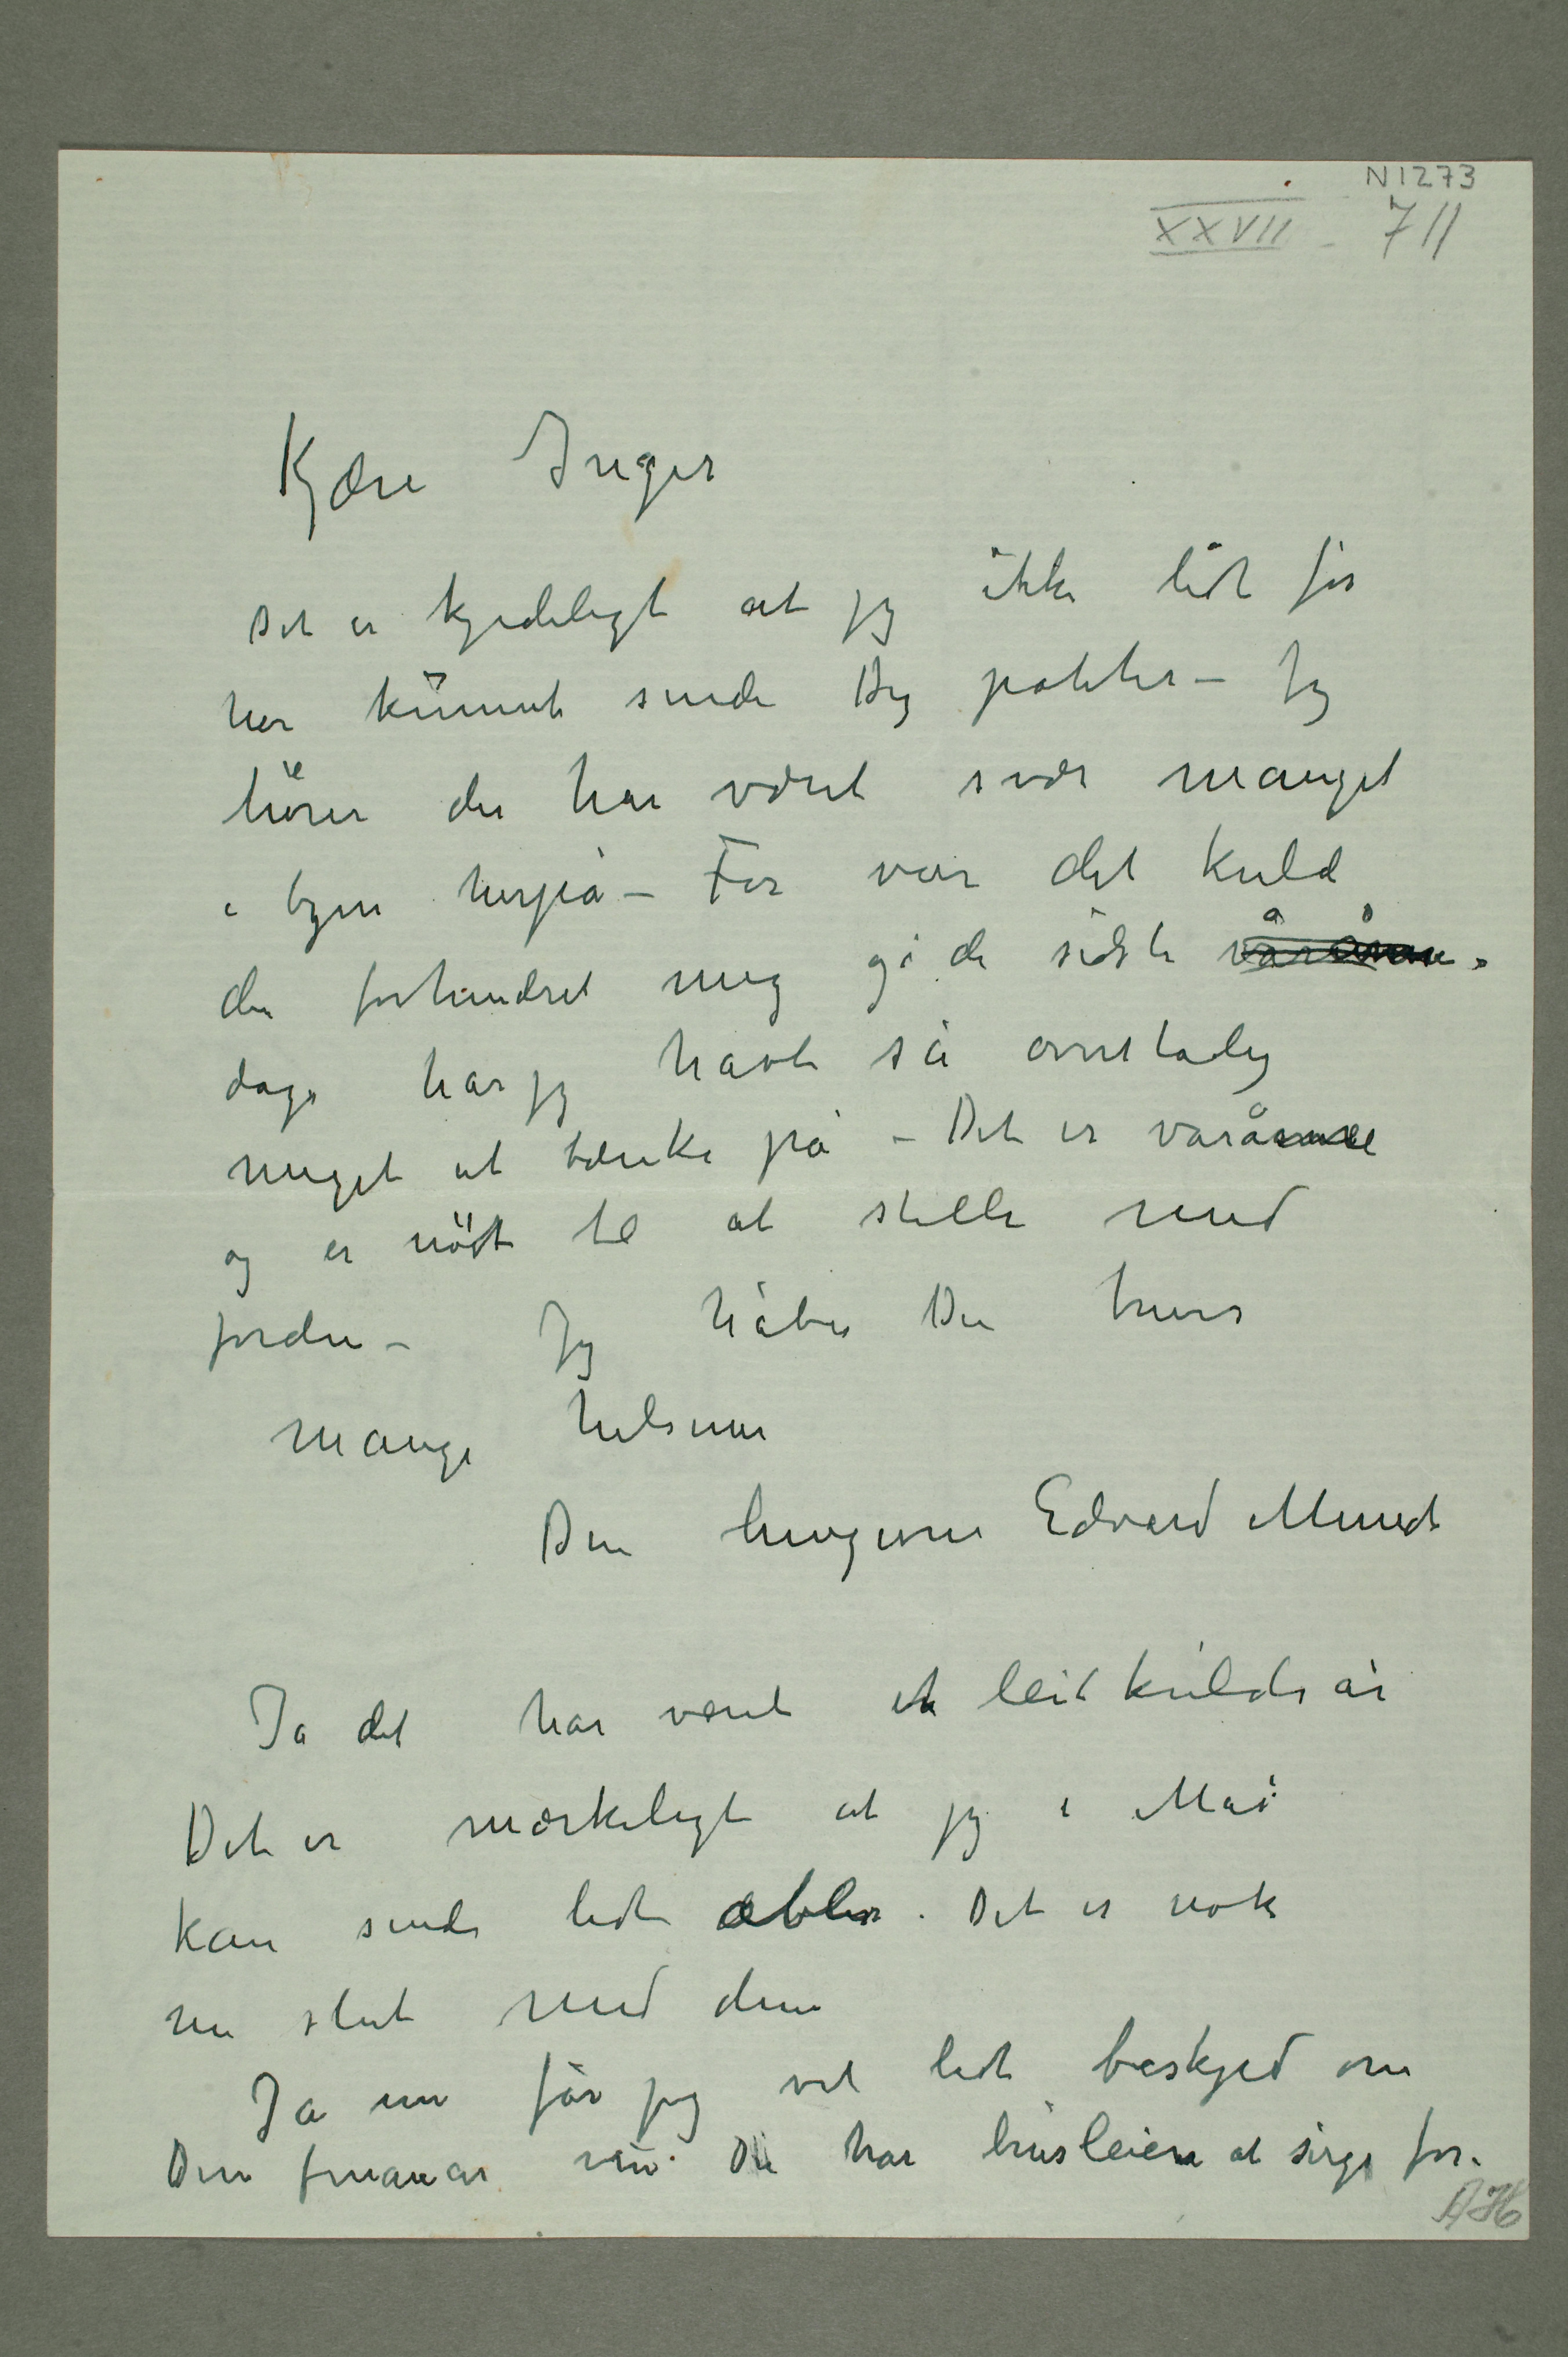 N1273
XXVII - 711
Kjære Inger
Det er kjedeligt at jeg ikke lidt før
har kunnet sende Dig poteter – Jeg
hører der har været svær mangel
i byen herpå – Før var det kuld
der forhindret mig og i de sidste
dage har jeg havt så ovnstadig
meget at tænke på – Det er våronne
og er nødt til at stelle med
jorden – Jeg håber Du trives
mange hilsener
Din hengivne Edvard Munch
Ja det har været et leit kuldeår
Det er mærkeligt at jeg i Mai
kan sende lidt æbler. Det er nok
nu slut med dem
Ja nu får jeg vel lidt beskjed om
Dine finanser nu. Du har husleien at sørge for.
AH